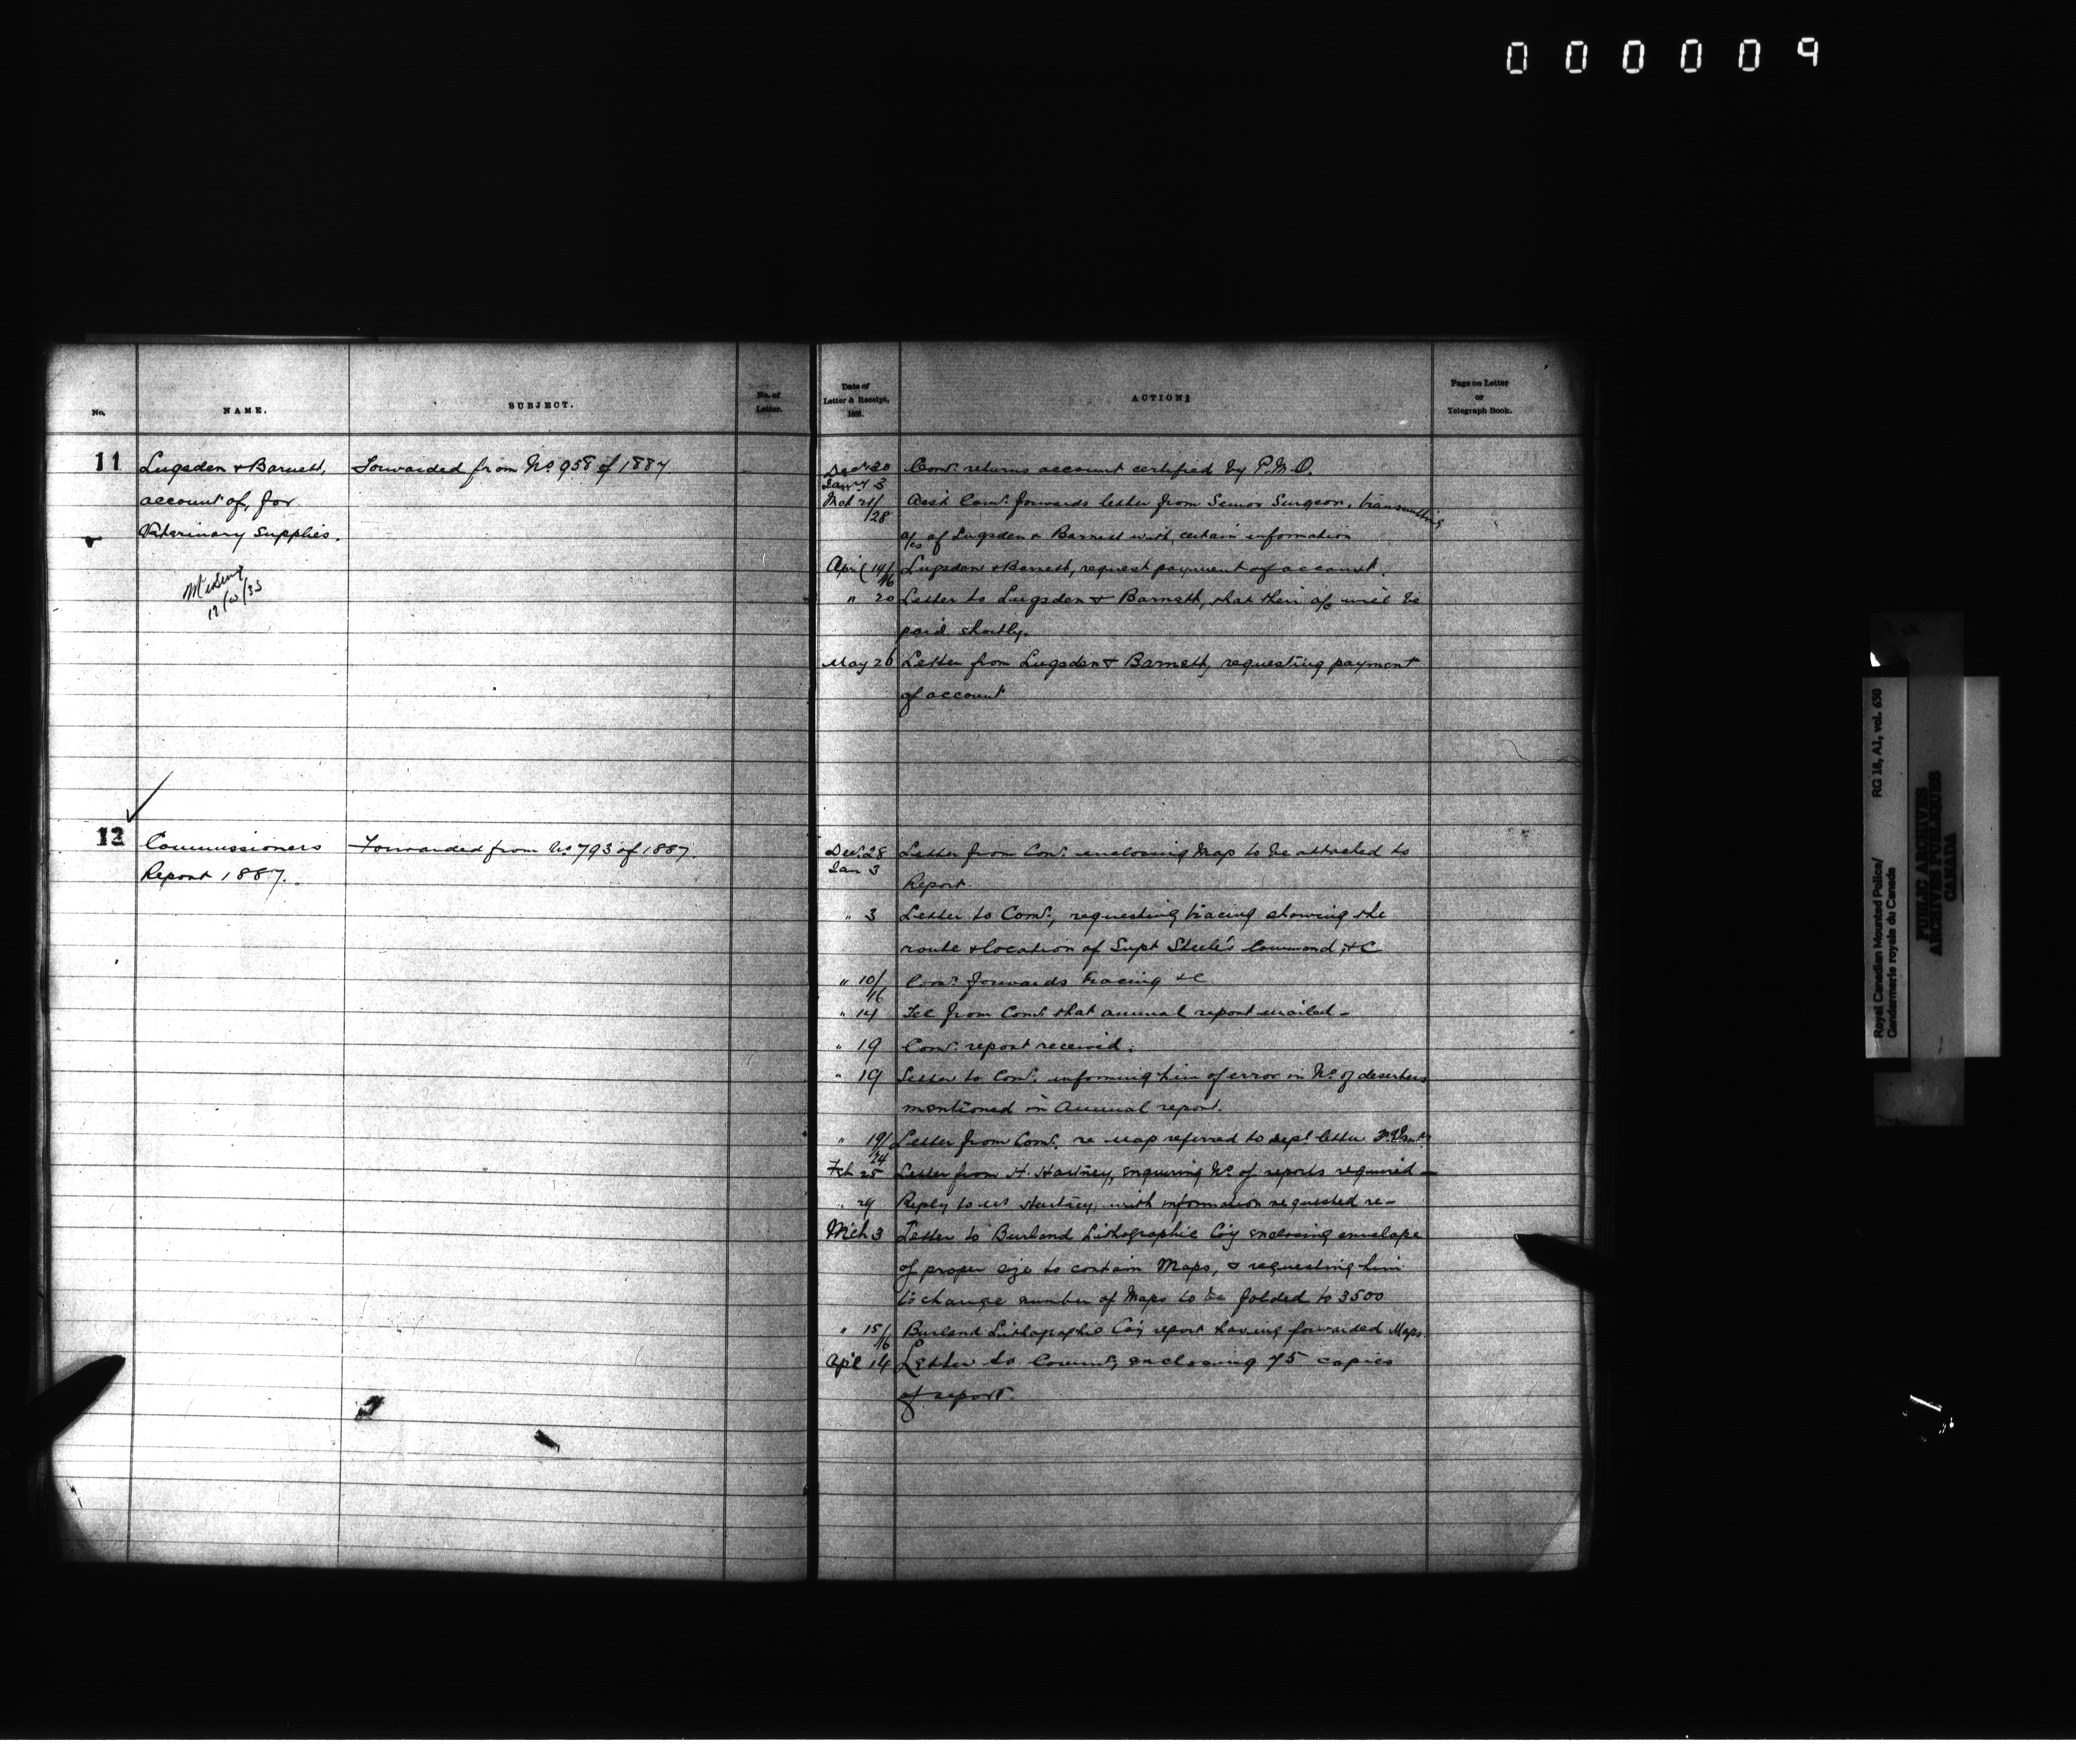 000009
No.
NAME.
SUBJECT.
No. of
Letter.
Date of
Letter & Receipt,
188 .
ACTION
Page on Letter
or
Telegraph Book.
11
Lugsden & Barnett,
account of, for
Veterinary Supplies.
Forwarded from No. 958 of 1887
Decr 30
Jany 3
Comr. returns account certified by P.M.O.
Mch 21/28
Asst Comr. forwards letter from Senior Surgeon, transmitting
a/cs of Lugsden & Barnett with certain information
April 14/16
Lugsden & Barnett, request payment of account.
" 20
Letter to Lugsden & Barnett, that their a/c will be
paid shortly.
May 26
Letter from Lugsden & Barnett, requesting payment
of account
12
Commissioners
Report 1887.
Forwarded from No. 793 of 1887.
Dec. 28
Jan 3
Letter from Comr. enclosing Map to be attached to
Report.
" 3
Letter to Comr, requesting tracing showing the
route & location of Supt Steele's Command, &c
" 10/16
Comr. forwards tracing &c
" 14
Tel from Comr. that annual report mailed -
" 19
Comr. report received.
" 19
Letter to Comr. informing him of error in No. of deserters
mentioned in Annual report.
" 19/24
Letter from Comr. re Map referred to dept letter
Feb 25
Letter from H. Hartney, enquiring No. of reports required -
" 29
Reply to Mr Hartney, with information requested re -
Mch 3
Letter to Burland Lithographic Coy enclosing envelope
of proper size to contain Maps, & requesting him
to change number of Maps to be folded to 3500
" 15/16
Burland Lithographic Coy report having forwarded Maps.
Apl 14
Letter to Commr, enclosing 75 copies
of report.
Royal Canadian Mounted Police/
Gendarmerie royale du Canada
RG 18, A1, vol. 650
PUBLIC ARCHIVES
ARCHIVES PUBLIQUES
CANADA